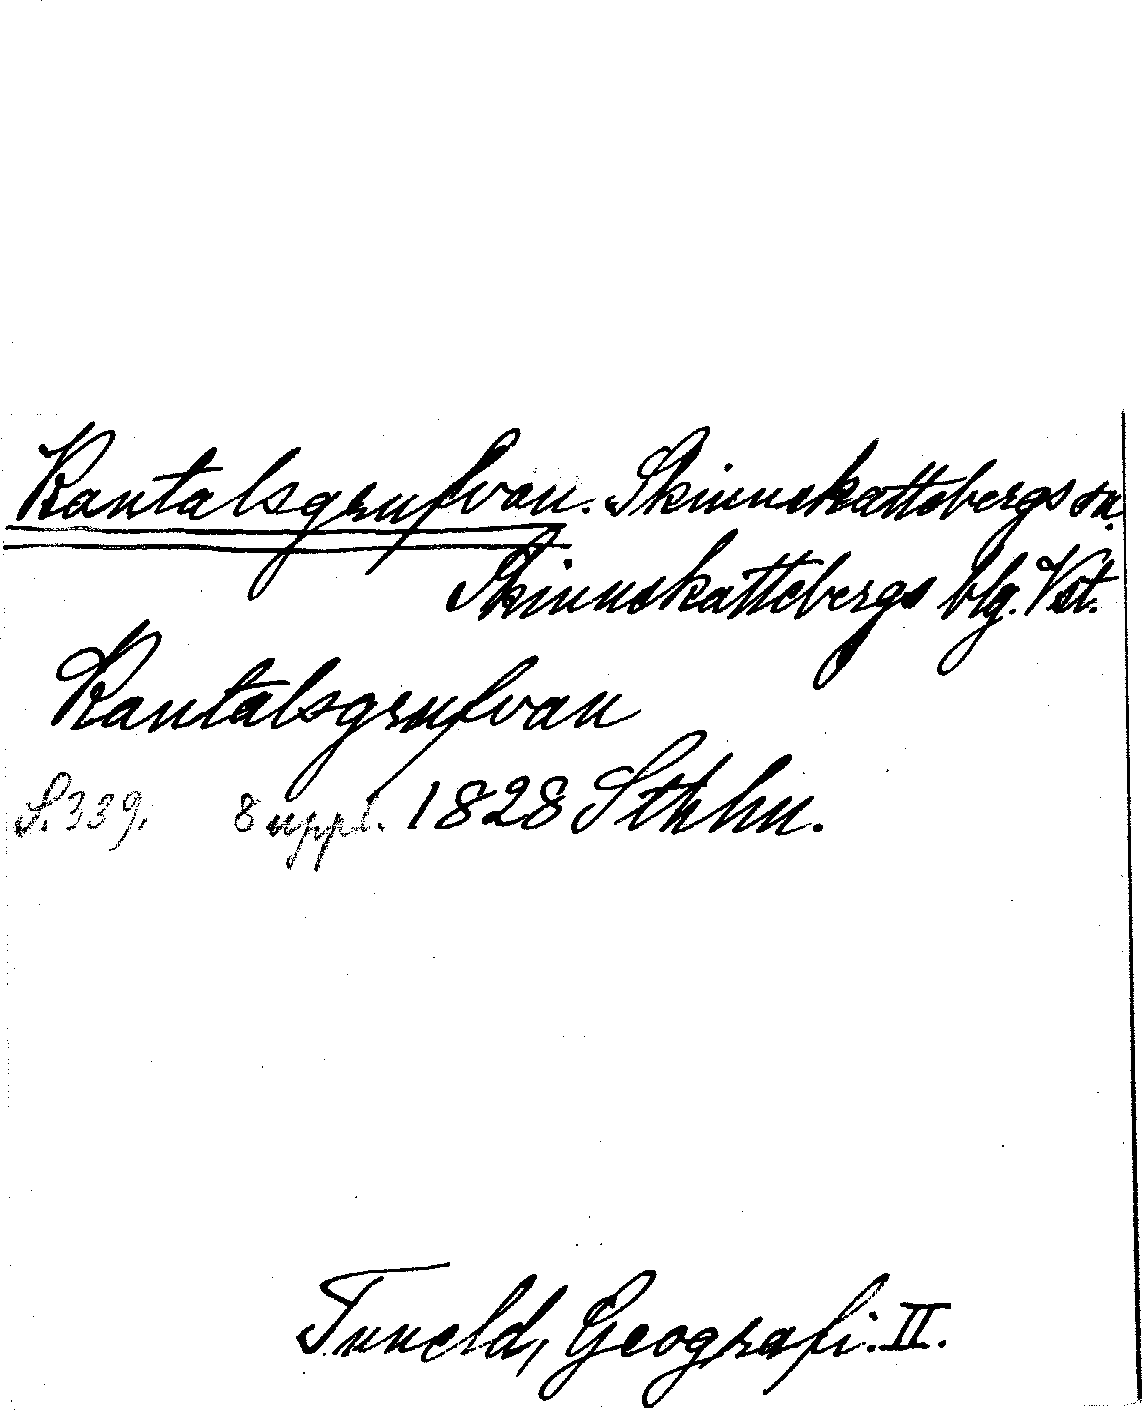 Kantalsgrufvan. Skinnskattebergs sn.
Skinnskattebergs blg. Vst.
Kantalsgrufvan
S. 339. 8 uppl. 1828 Sthlm.
Tuneld, Geografi. II.